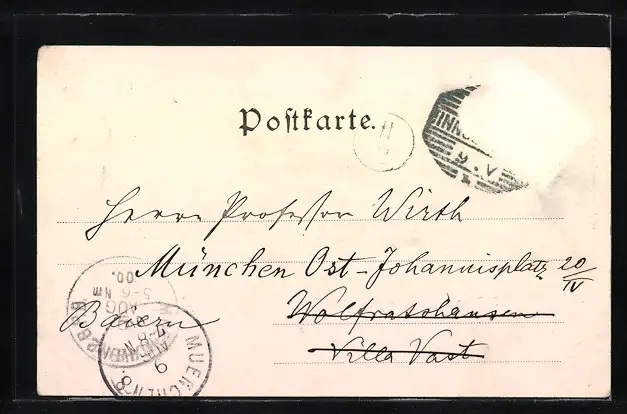 Postkarte.
INNS
9. V
Herrn Professor Wirth
München Ost-Johannisplatz 20/IV
Baiern
Wolfratshausen
Villa Vast
MUENCHEN 8
AUG
5-6 NM
00.
7-8 N